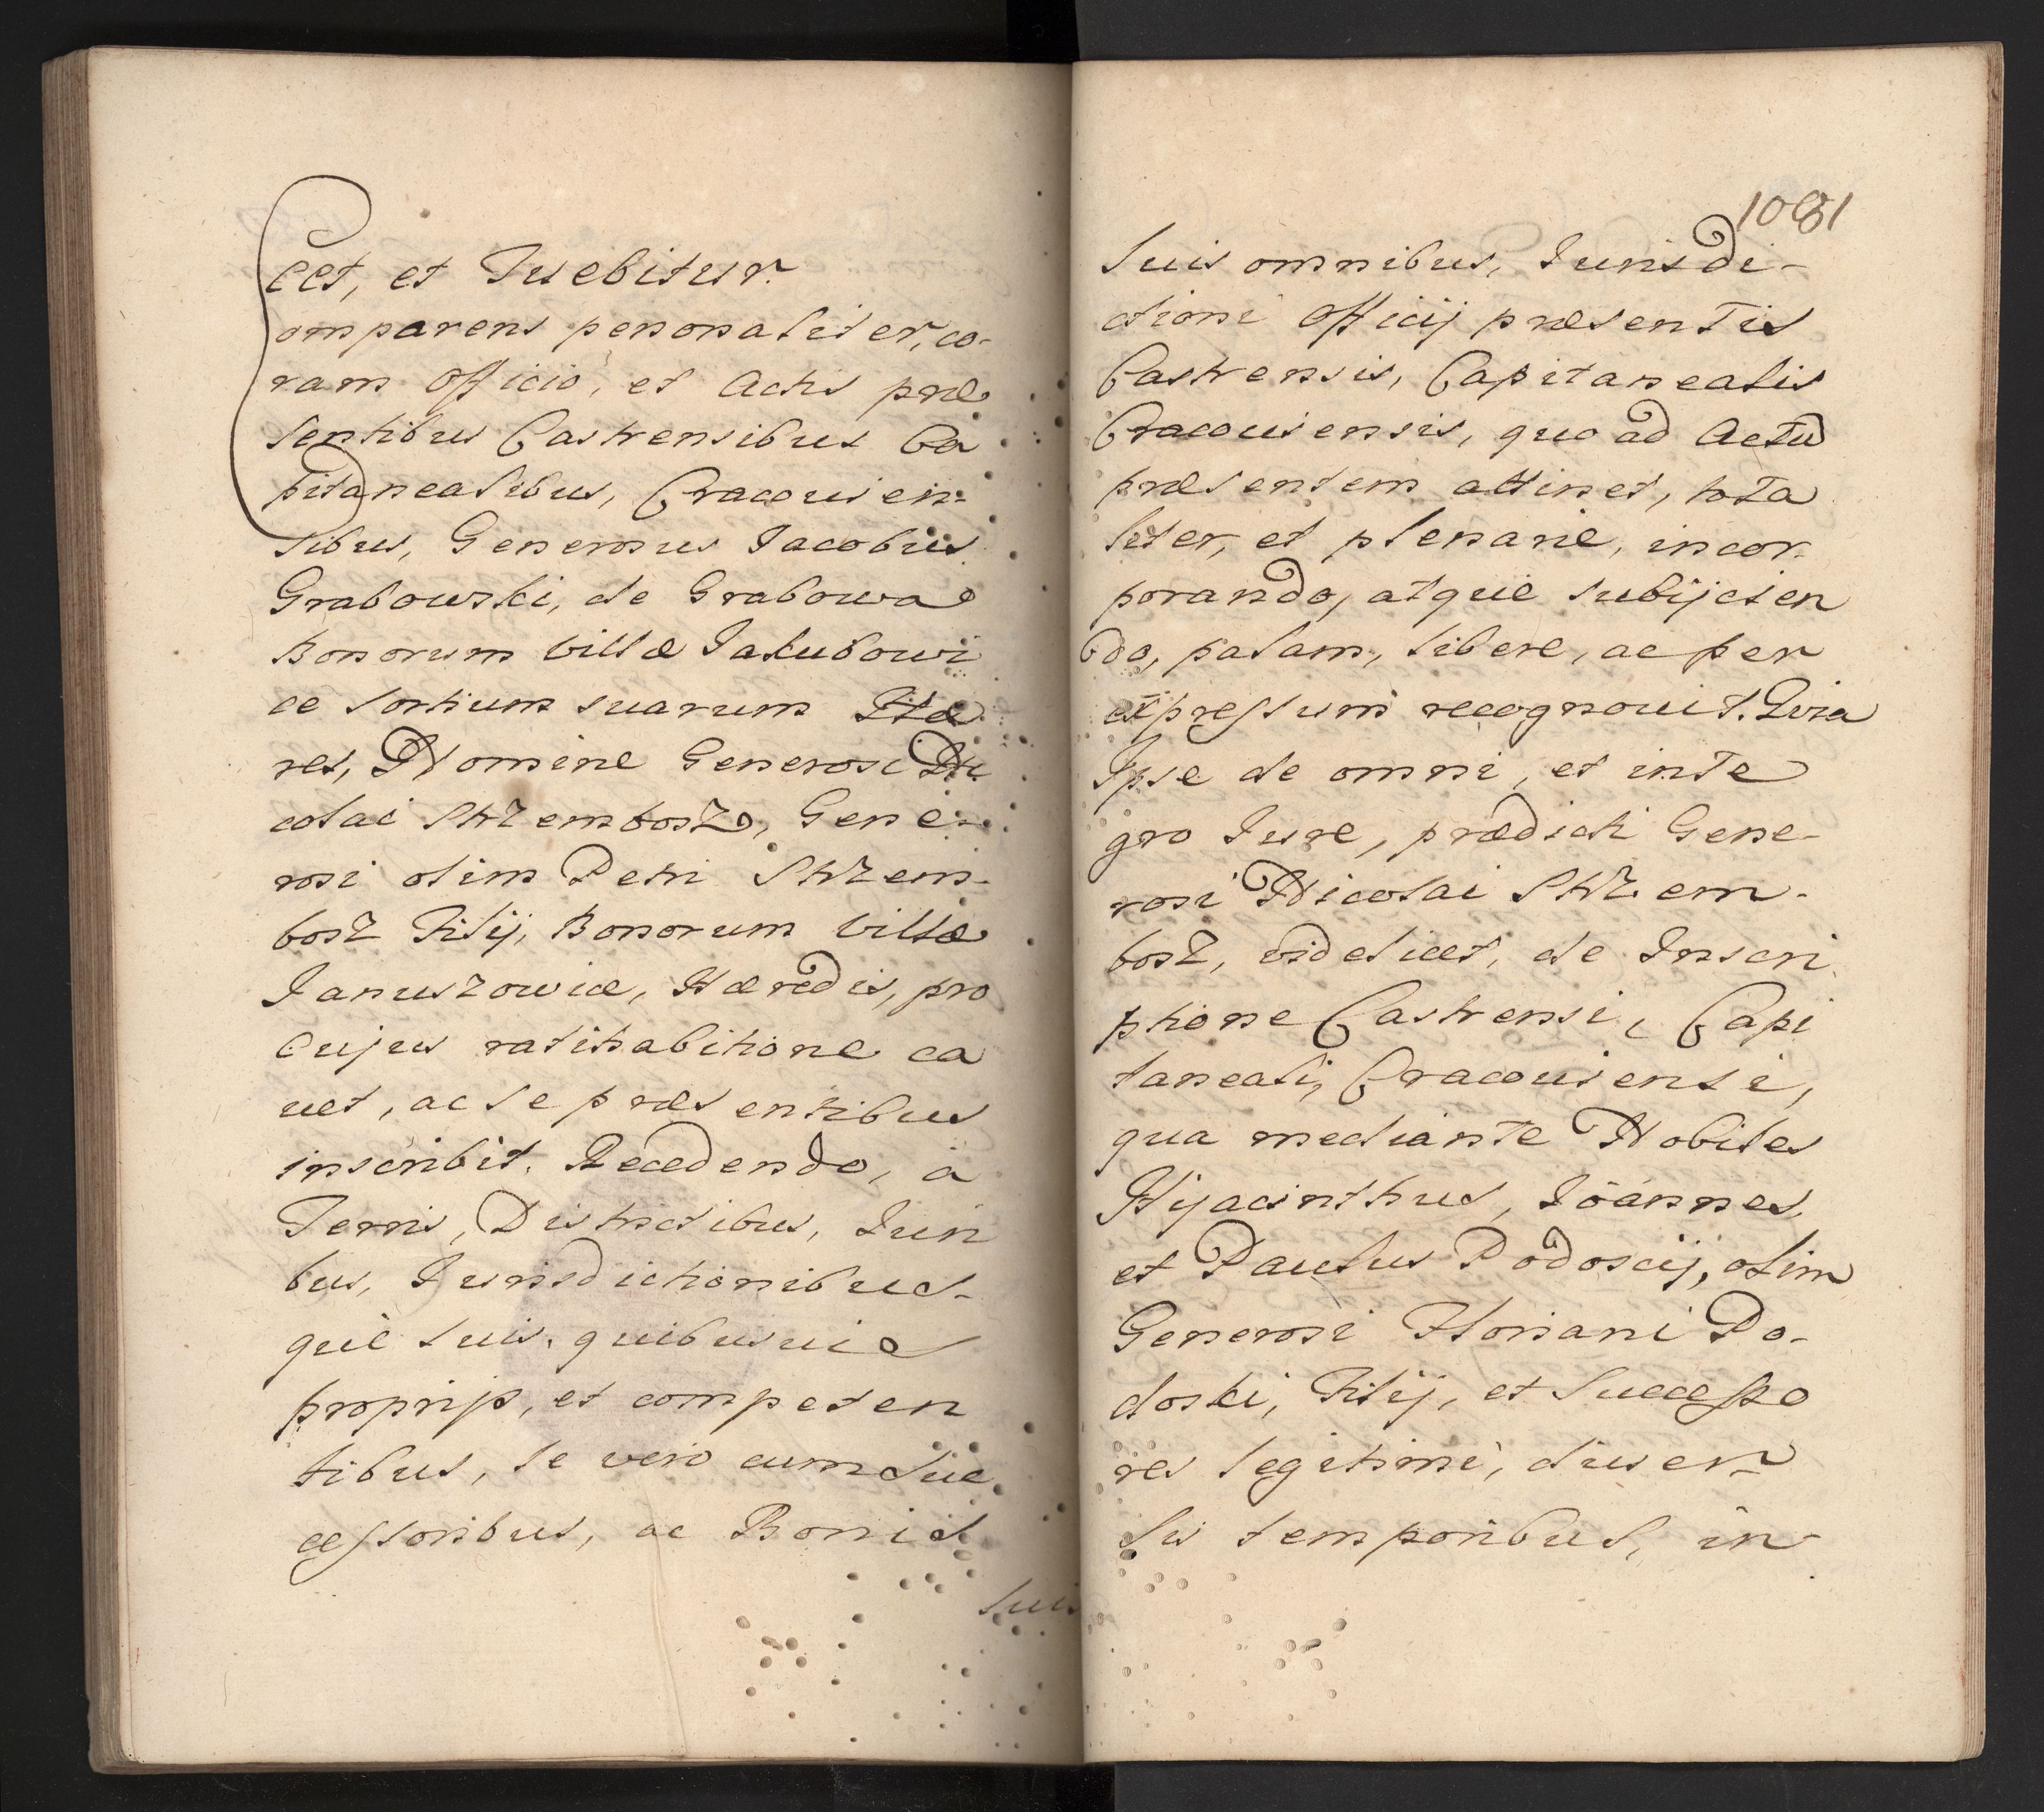 cet, et Tuebitur.
Comparens personaliter, co-
ram Officio, et Actis præ
sentibus Castrensibus Ca
pitanealibus, Cracouien-
sibus, Generosus Iacobus
Grabowski, de Grabowa
Bonorum Villæ Iakubowi
ce sortium suarum Hæ
res, Nomine Generosi Ni
colai Strzembosz, Gene-
rosi olim Petri Strzem-
bosz Filij, Bonorum Villæ
Ianuszowice, Hæredis, pro
Cujus ratihabitione ca
uet, ac se præsentibus
inscribit. Recedendo, à
Terris, Districtibus, Iuri
bus, Iurisdictionibus-
que suis, quibusuis
proprijs, et competen
tibus, se vero cum suc
cessoribus, ac Bonis
suis
1081
suis omnibus, Iurisdi-
ctioni Officij præsentis
Castrensis, Capitanealis
Cracouiensis, quo ad Actū
præsentem attinet, tota
liter, et plenarie, incor-
porando, atque subijcien
do, palam, libere, ac per
expressum recognouit. Quia
Ipse de omni, et inte
gro Iure, prædicti Gene-
rosi Nicolai Strzem-
bosz, videlicet, de Inscri
ptione Castrensi, Capi
taneali, Cracouiensi,
qua mediante Nobiles
Hyacinthus, Ioannes
et Paulus Podoscij, olim
Generosi Floriani Po-
doski, Filij, et Successo
res legitimi, diuer-
sis temporibus, in-